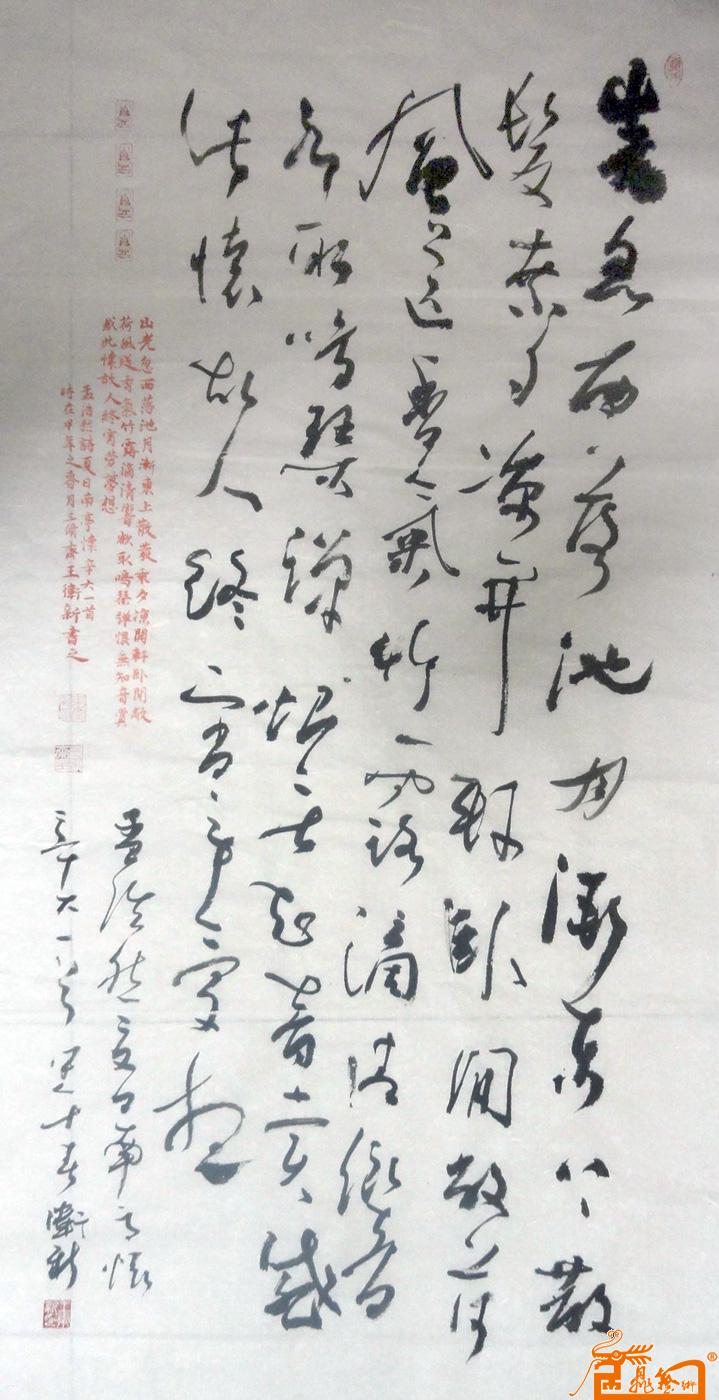 山光忽西落池月漸東上散
髮乘夕涼開軒臥閑敞荷
風送香氣竹露滴清響
欲取鳴琴彈恨無知音賞感
此懷故人終宵勞夢想
山光忽西落池月漸東上散髮乘夕涼開軒臥閑敞
荷風送香氣竹露滴清響欲取鳴琴彈恨無知音賞
感此懷故人終宵勞夢想
孟浩然詩夏日南亭懷辛大一首
時在甲年之春月三脩齋王衛新書之
孟浩然夏日南亭懷
辛大一首 衛新